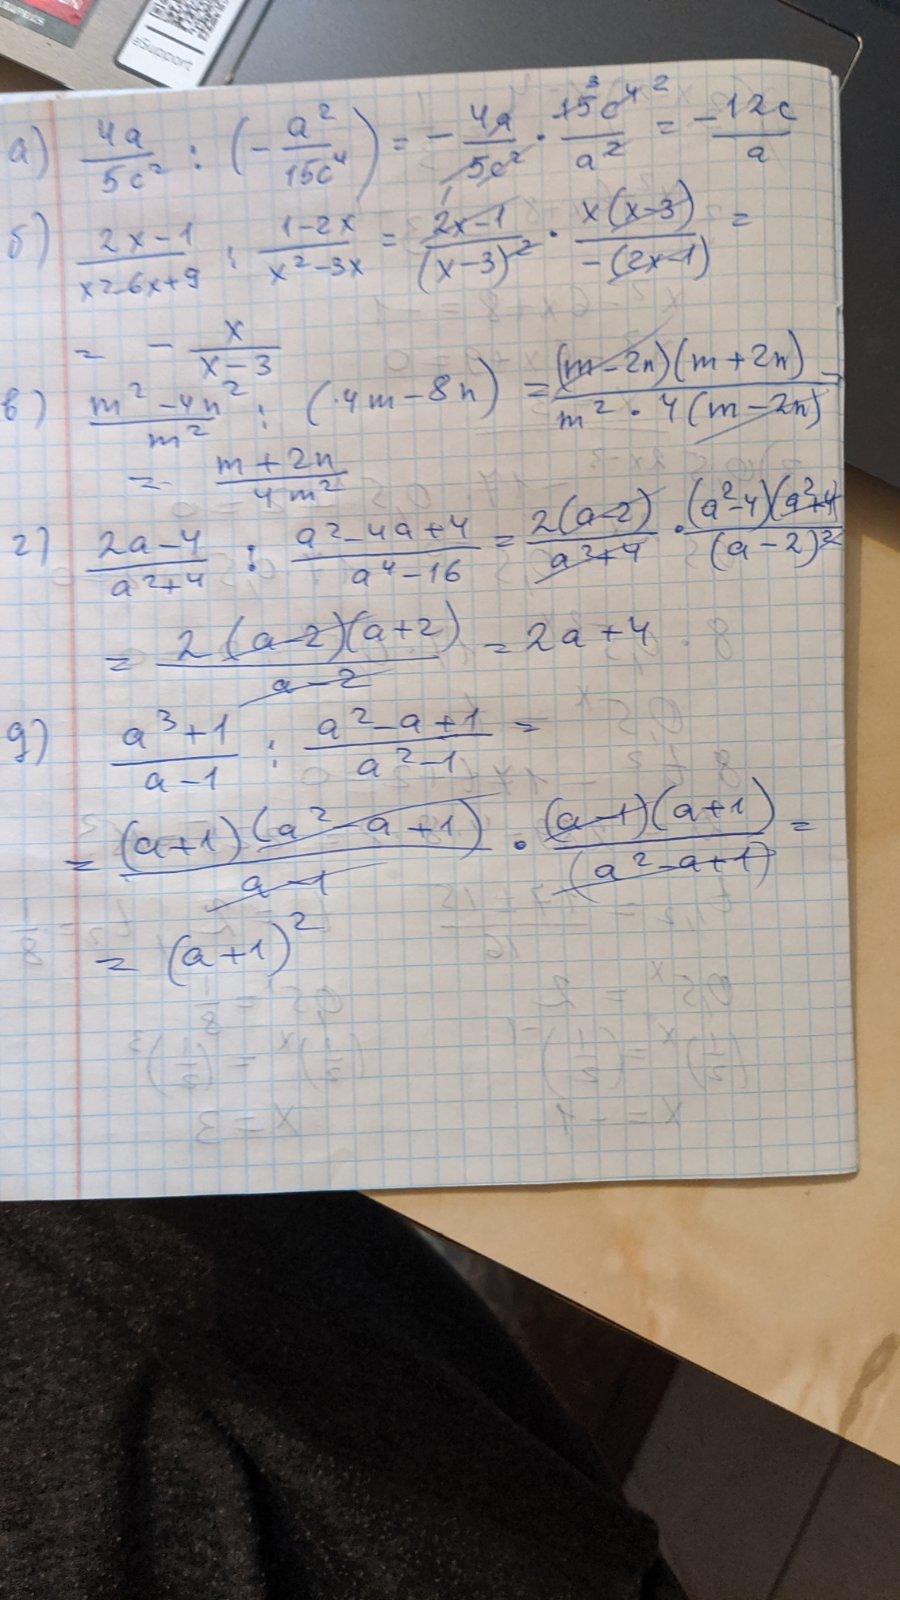 eSupport
а) 4a/5c² : (-a²/15c⁴) = -4a/5c² · 15c⁴/a² = -12c/a
3 2
1
б) 2x-1/x²-6x+9 : 1-2x/x²-3x = 2x-1/(x-3)² · x(x-3)/-(2x-1) =
= - x/x-3
в) m²-4n²/m² : (4m-8n) = (m-2n)(m+2n)/m²·4(m-2n) =
= m+2n/4m²
г) 2a-4/a²+4 : a²-4a+4/a⁴-16 = 2(a-2)/a²+4 · (a²-4)(a²+4)/(a-2)²
= 2(a-2)(a+2)/a-2 = 2a+4
д) a³+1/a-1 : a²-a+1/a²-1 =
= (a+1)(a²-a+1)/a-1 · (a-1)(a+1)/(a²-a+1) =
= (a+1)²